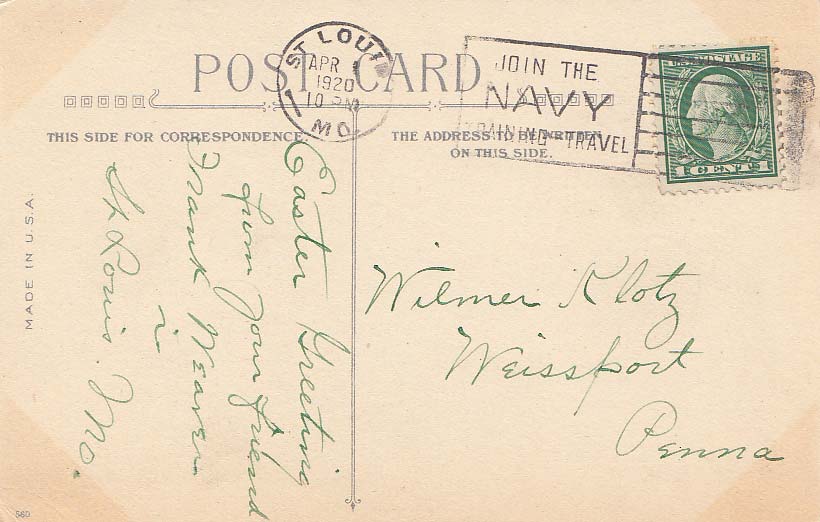 POST CARD
ST LOUI
APR
1920
10 PM
MO.
JOIN THE
NAVY
TRAVEL
U.S. POSTAGE
1 CENTS 1
THIS SIDE FOR CORRESPONDENCE.
THE ADDRESS TO BE WRITTEN
ON THIS SIDE.
Easter Greeting
from your friend
Frank Weaver
in
St Louis. Mo.
Wilmer Klotz
Weissport
Penna
MADE IN U.S.A.
560